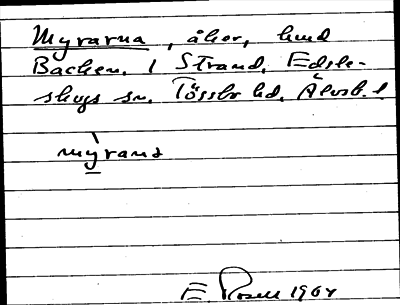 Myrarna, åker, hmd
Backen, 1 Strand, Edsle-
skogs sn. Tössbo hd. Älvsb. l
mỳrana
E. Rosell 1964